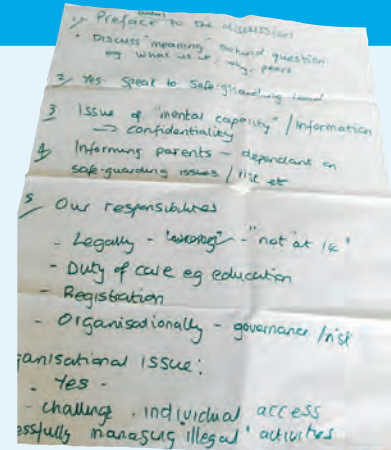 1/ Preface to the discussion
• Discuss "meaning" behind question
eg what is it, why, peers
2/ Yes - Speak to Safe-guarding Lead
3 Issue of "mental capacity" / Information
→ confidentiality
4 Informing parents - dependant on
safe-guarding issues / risk etc
5/ Our responsibilities
- Legally - - "not at 14"
- Duty of care eg education
- Registration
- Organisationally - governance / risk
ganisational issue:
- Yes -
- challenge . individual access
essfully managing 'illegal' activities